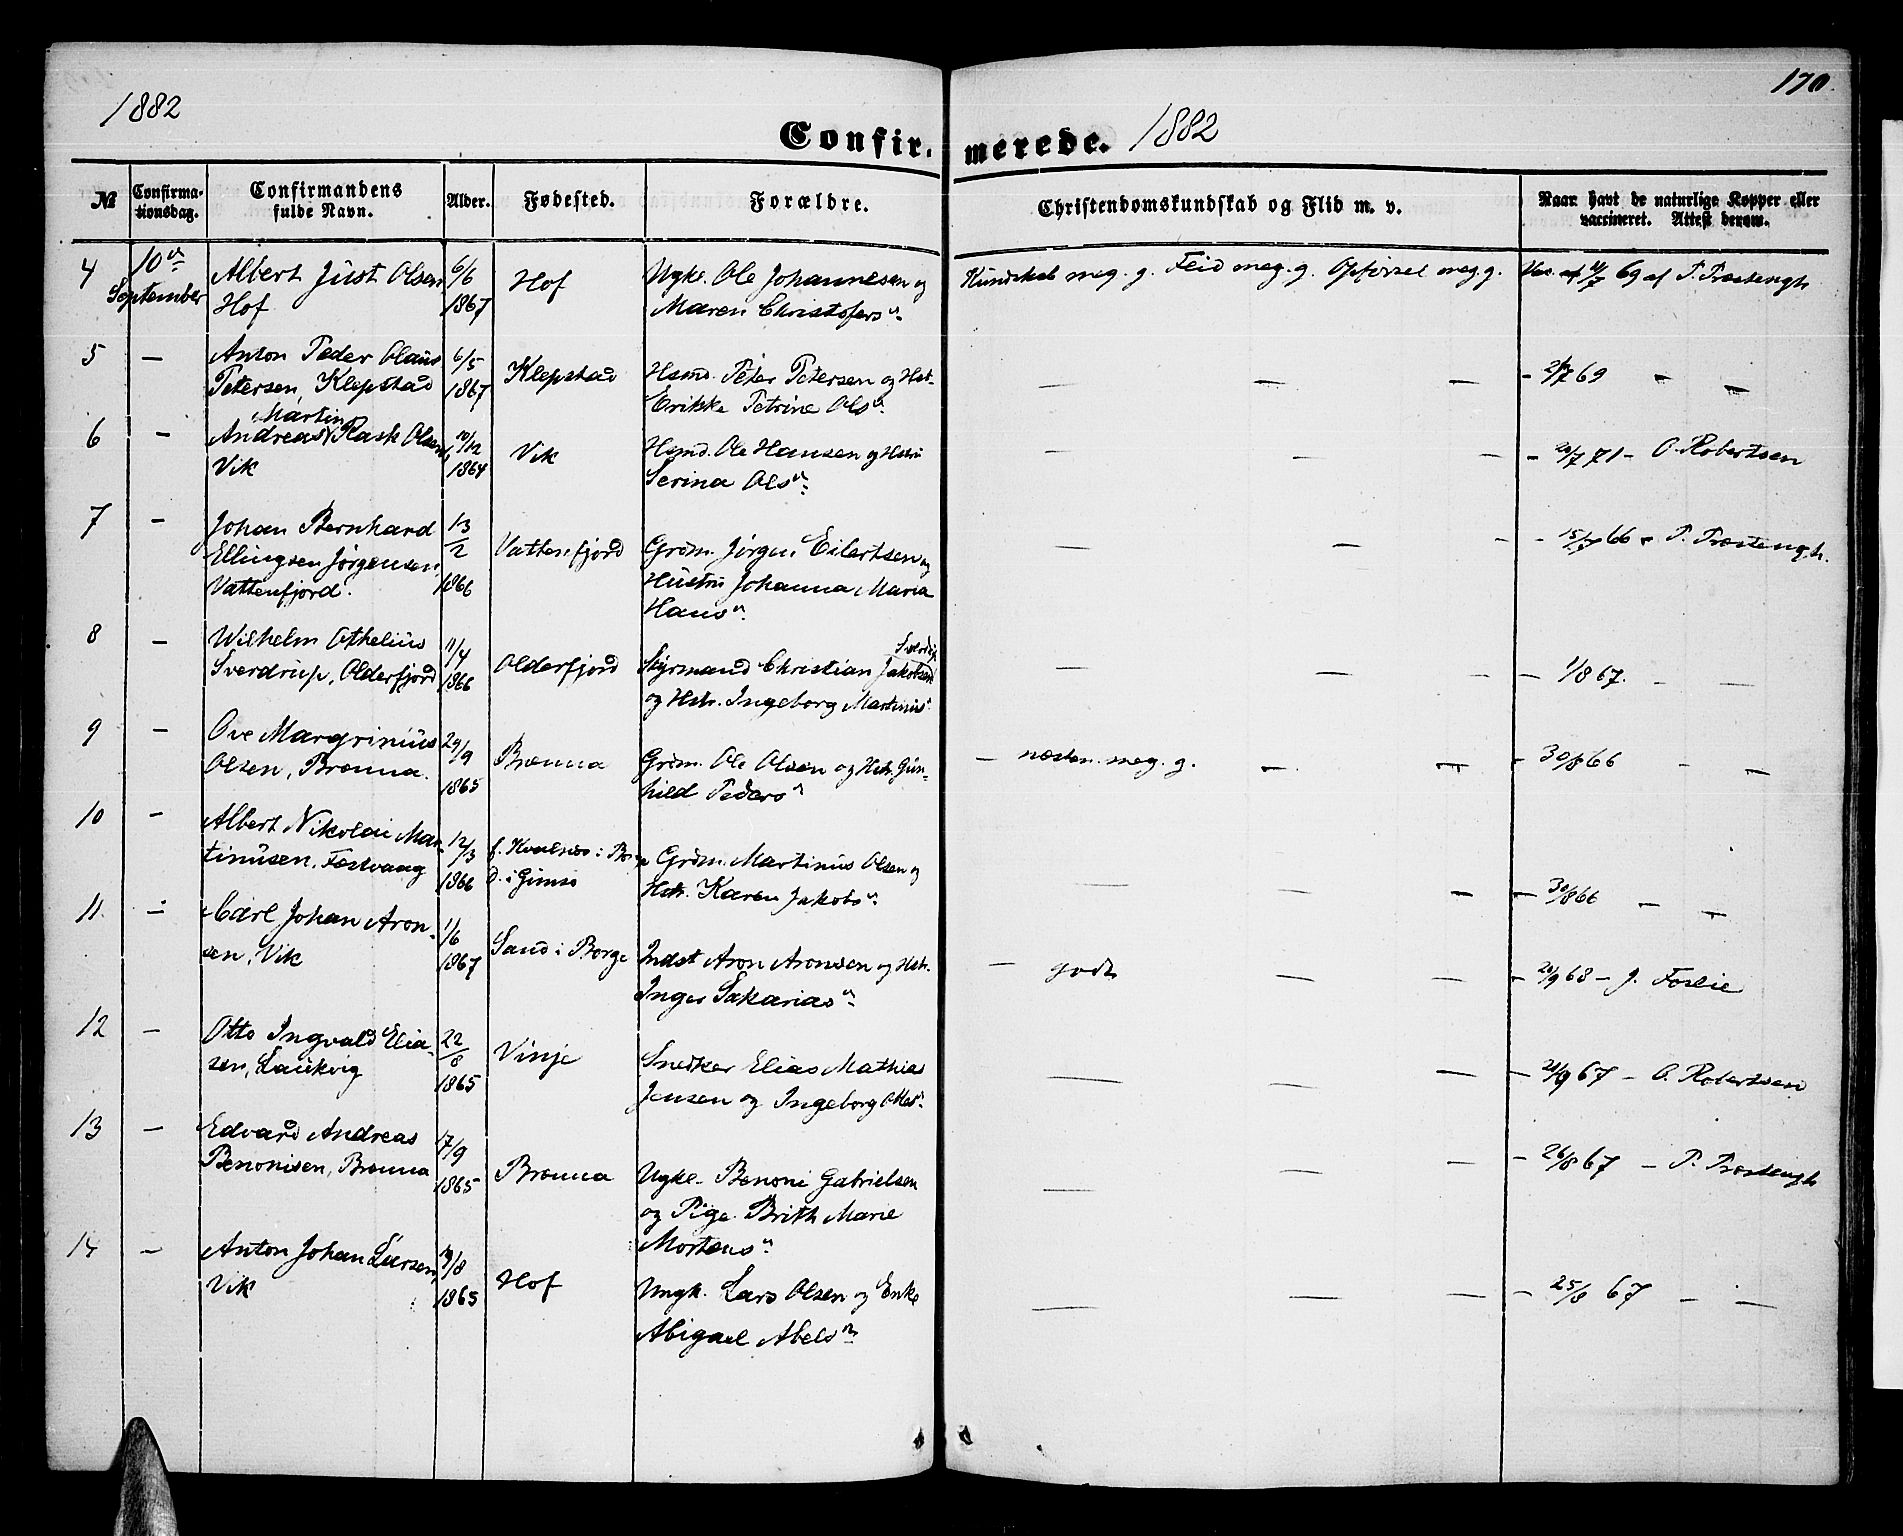 170.
1882
Confir. merede. 1882
№ Confirma- Confirmandens Alder. Fødested. Forældre. Christendomskundskab og Flid m. v. Naar havt de naturlige Kopper eller
tionsdag. fulde Navn. vaccineret. Attest derom.
4 10de Albert Just Olsen 6/6 Hof Ugke. Ole Johannesen og Kundskab meg. g. Flid meg. g. Opførsel meg. g. Vac. /7 69 af P. Præstengh
September Hof 1867 Maren Christofersd.
5 — Anton Peder Olaus 6/5 Klepstad Hsmd. Peter Petersen og Hst. — — — - 2/7 69 - -
Petersen, Klepstad 1867 Erikke Petrine Olsd.
Martin
6 — Andreas Rask Olsen 10/12 Vik Hsmd. Ole Hansen og Hstru — — — - 20/7 71 - O. Robertsen
Vik 1864 Serina Olsd.
7 — Johan Bernhard 13/2 Vattenfjord Grdm. Jørgen Eilertsen og — — — - 15/7 66 - P. Præstengh.
Ellingsen Jørgensen, 1866 Hustru Johanna Maria
Vattenfjord. Hansd.
8 — Wilhelm Othelius 11/4 Olderfjord Styrmand Christian Jakobsen — — — - 1/8 67. - -
Sverdrup, Olderfjord 1866 og Hstr. Ingeborg Martinusd.
9 — Ove Margrinius 29/9 Brenna Grdm. Ole Olsen og Hstr. Gun- — næsten meg. g. — — - 30/8 66 - -
Olsen, Brenna. 1865 hild Pedersd.
10 — Albert Nikolai Mar- 12/3 f. Hvalnes i Borge Grdm. Martinus Olsen og — — — - 30/8 66 - -
tinusen, Festvaag 1866 D. i Gimsø Hstr. Karen Jakobsd.
11. — Carl Johan Aron- 1/6 Sand i Borge Indst Aron Aronsen og Hstr. — godt — — - 20/9 68 - J. Foslie
sen, Vik 1867 Inger Sakariasd.
12 — Otto Ingvald Elia- 22/8 Vinje Snedker Elias Mathias — — — - 21/9 67 - O. Robertsen
sen, Laukvig 1865 Jensen og Ingeborg
13 — Edvard Andreas 17/9 Brenna Ugke. Benoni Gabrielsen — — — - 26/8 67 - P. Præstengh
Benonisen, Brenna 1865 og Pige Brith Marie
Mortensd.
14 — Anton Johan Larsen, /8 Hof Ungk. Lars Olsen og Enke — — — - 25/8 67 - -
Vik 1865 Abigael Abelsd.